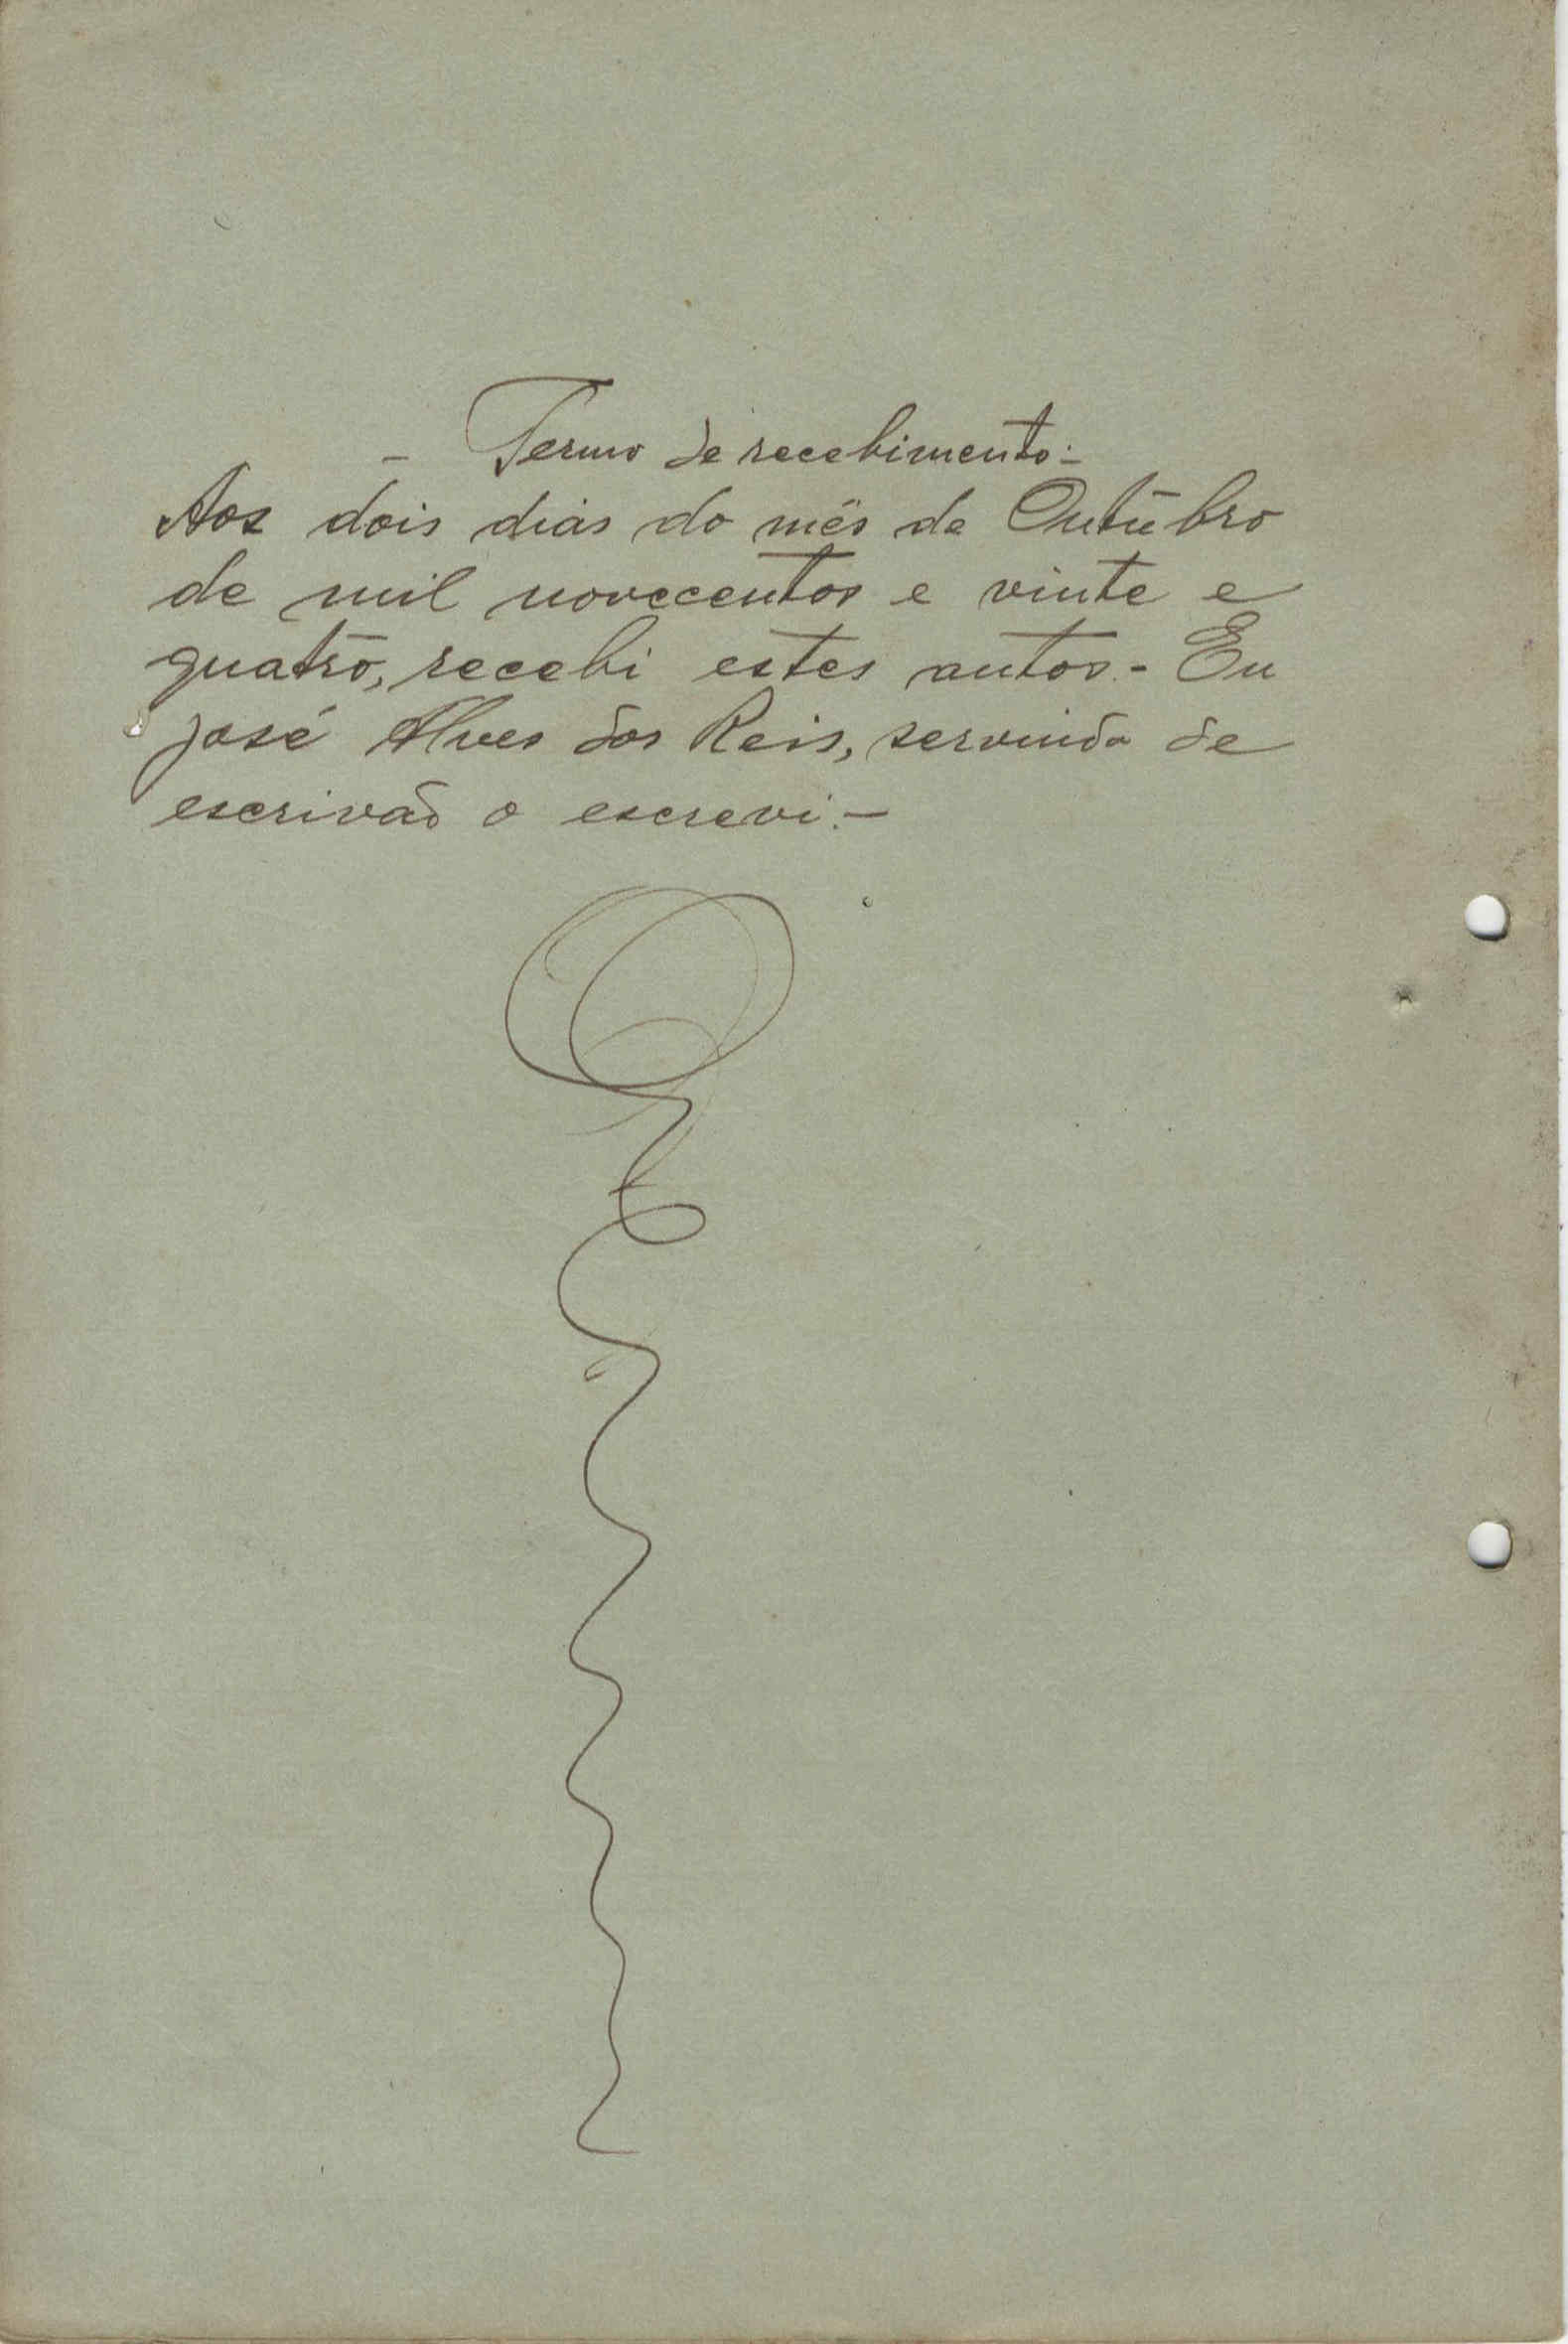 - Termo de recebimento:-
Aos dois dias do mês de Outubro
de mil novecentos e vinte e
quatro, recebi estes autos.- Eu
José Alves dos Reis, servindo de
escrivão o escrevi.-